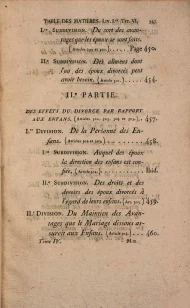 TABLE DES MATIERES. Liv. I.er Tit. VI.
I.re SUBDIVISION. Du sort des avantages que les époux se sont faits.
Page 450
II.e SUBDIVISION. Des alimens dont
l'un des époux divorcés peut
avoir besoin. 454.
II.e PARTIE.
DES EFFETS DU DIVORCE PAR RAPPORT
AUX ENFANS. 457.
I.re DIVISION. De la Personne des Enfans. 458.
I.re SUBDIVISION. Auquel des époux
la direction des enfans est confiée. Ibid.
II.e SUBDIVISION. Des droits et des
devoirs des époux divorcés à
l'égard de leurs enfans. 459.
II.e DIVISION. Du Maintien des Avantages que le Mariage dissous assuroit aux Enfans. 460.
Tome IV.